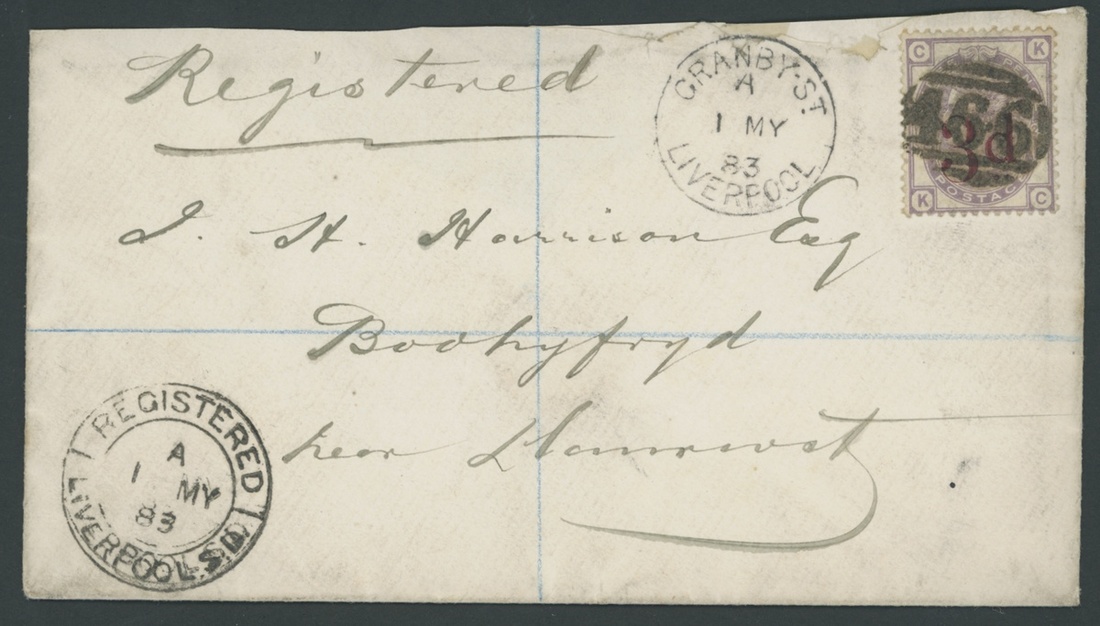 Registered
GRANBY-ST
A
1 MY
83
LIVERPOOL
C K
466
3d
POSTAG
K C
J. H. Harrison Esq
Bodhyfryd
near Llanrwst
REGISTERED
A
1 MY
83
LIVERPOOL.S.D.